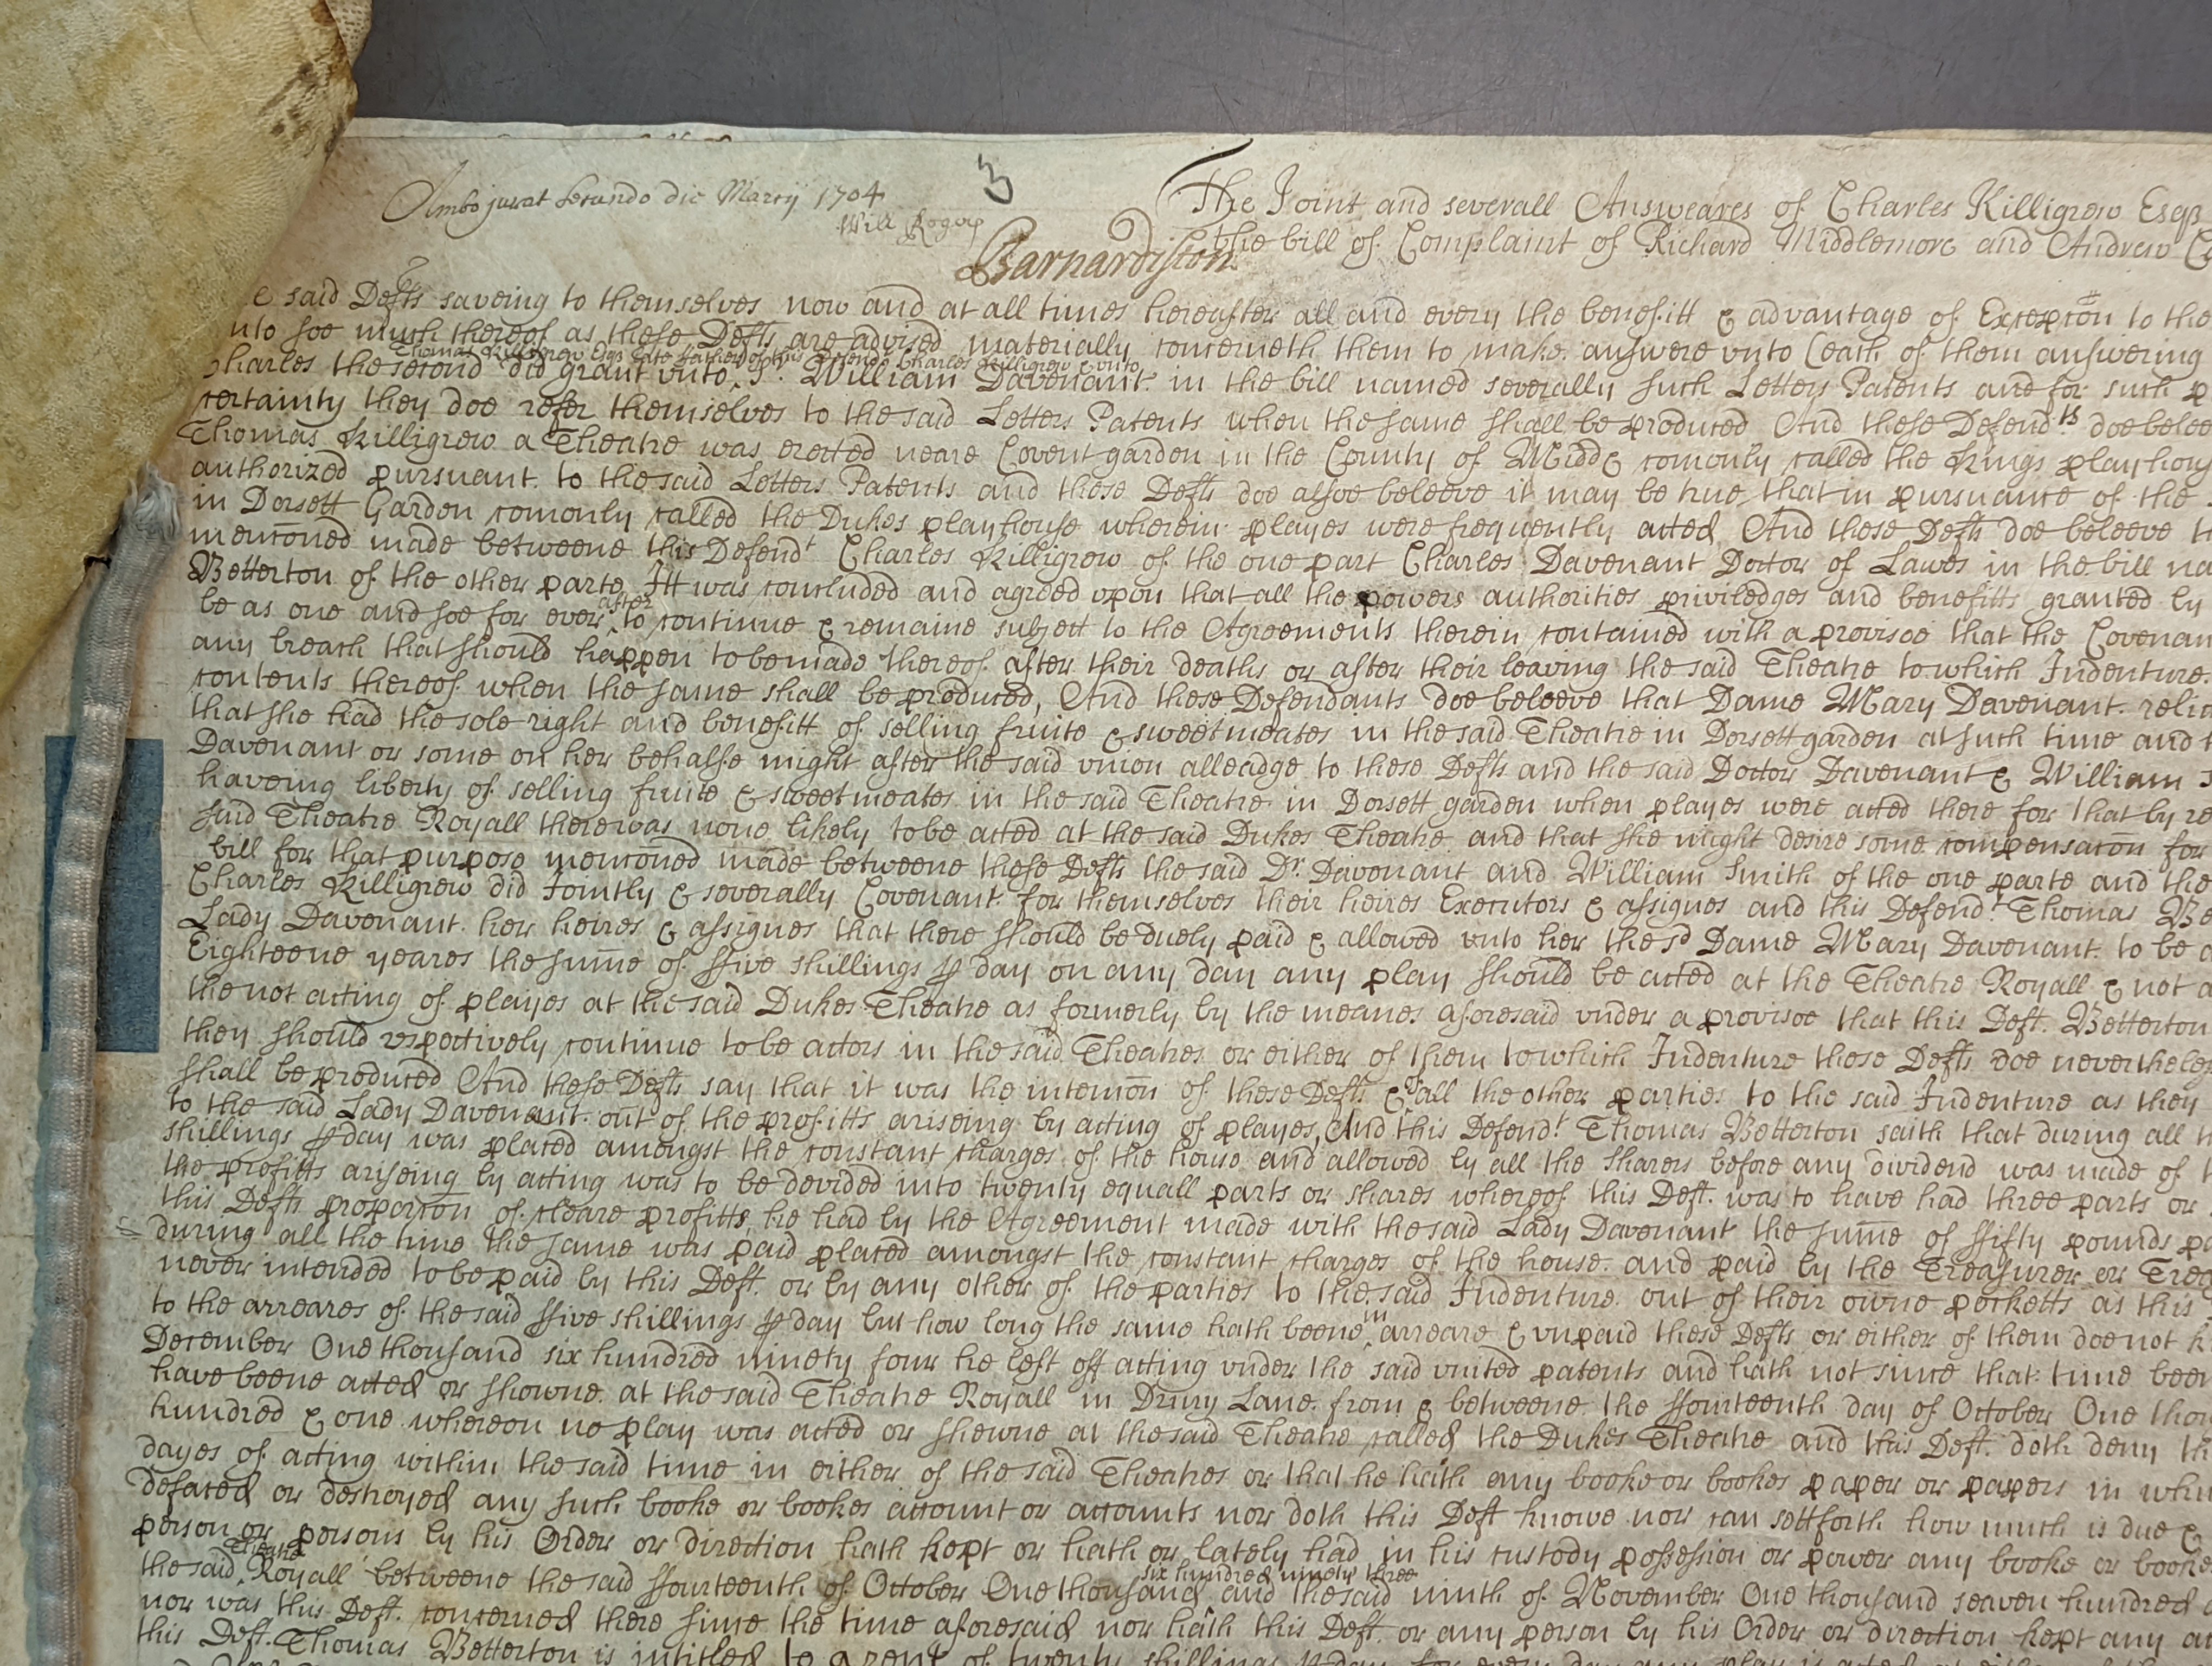 Ambo jurat secundo die Martij 1704
Will Rogers
3
The Joint and severall Answeares of Charles Killigrew Esqr
Barnardiston
the bill of Complaint of Richard Middlemore and Andrew
said Defts saveing to themselves now and at all times hereafter all and every the benefitt & advantage of Excepcōn to the
unto soe much thereof as these Defts are advised materially concerneth them to make answere unto Each of them answering
Thomas Killigrew Esqr late father of this Defendt Charles Killigrew & unto
Charles the second did grant unto Sr. William Davenant in the bill named severally such Letters Patents and for such
certainty they doe refer themselves to the said Letters Patents when the same shall be produced And these Defendts doe
Thomas Killigrew a Theatre was erected neare Covent garden in the County of Midd comonly called the Kings playhous
authorized pursuant to the said Letters Patents and these Defts doe alsoe beleeve it may be true that in pursuance of the
in Dorsett Garden comonly called the Dukes playhouse wherein playes were frequently acted And these Defts doe beleeve
mencōned made betweene this Defendt Charles Killigrew of the one part Charles Davenant Doctor of Lawes in the bill
Betterton of the other parte Itt was concluded and agreed upon that all the powers authorities priviledges and benefitts granted by
after
be as one and soe for ever to continue & remaine subject to the Agreements therein contained with a provisoe that the
any breach that should happen to be made thereof after their deaths or after their leaving the said Theatre to which Indenture
contents thereof when the same shall be produced, And these Defendants doe beleeve that Dame Mary Davenant
that she had the sole right and benefitt of selling fruite & sweetmeates in the said Theatre in Dorsett garden at such time and
Davenant or some on her behalfe might after the said union alleadge to these Defts and the said Doctor Davenant & William
haveing liberty of selling fruite & sweetmeates in the said Theatre in Dorsett garden when playes were acted there for that by
said Theatre Royall there was none likely to be acted at the said Dukes Theatre and that she might desire some compensacōn for
bill for that purpose mencōned made betweene these Defts the said Dr. Davenant and William Smith of the one parte and the
Charles Killigrew did Jointly & severally Covenant for themselves their heires Executors & assignes and this Defendt Thomas
Lady Davenant her heires & assignes that there should be duely paid & allowed unto her the sd Dame Mary Davenant to be
Eighteene yeares the sume of ffive shillings p day on any day any play should be acted at the Theatre Royall & not
the not acting of playes at the said Dukes Theatre as formerly by the meanes aforesaid under a provisoe that this Deft. Betterton
they should respectively continue to be actors in the said Theatres or either of them to which Indenture these Defts doe
shall be produced And these Defts say that it was the intencōn of these Defts & of all the other parties to the said Indenture as they
to the said Lady Davenant out of the profitts ariseing by acting of playes, And this Defendt Thomas Betterton saith that during all
shillings p day was placed amongst the constant charges of the house and allowed by all the sharers before any dividend was made of
the profitts ariseing by acting was to be devided into twenty equall parts or shares whereof this Deft. was to have had three parts or
this Defts proporcōn of cleare profitts, he had by the Agreement made with the said Lady Davenant the sume of ffifty pounds
during all the time the same was paid placed amongst the constant charges of the house and paid by the Treasurer or
never intended to be paid by this Deft. or by any other of the parties to the said Indenture out of their owne pocketts as this
in
to the arreares of the said ffive shillings p day but how long the same hath beene arreare & unpaid these Defts or either of them doe not
December One thousand six hundred ninety four he left off acting under the said united patents and hath not since that time
have beene acted or showne at the said Theatre Royall in Drury Lane from & betweene the ffourteenth day of October One
hundred & one whereon no play was acted or shewne at the said Theatre called the Dukes Theatre and this Deft. doth deny
dayes of acting within the said time in either of the said Theatres or that he hath any booke or bookes paper or papers in
defaced or destroyed any such booke or bookes account or accounts nor doth this Deft knowe nor can sett forth how much is due &
person or persons by his Order or direction hath kept or hath or lately had in his custody possession or power any booke or
Theatre
six hundred ninety three
the said Royall betweene the said ffourteenth of October One thousand and the said ninth of November One thousand seaven hundred
nor was this Deft. concerned there since the time aforesaid nor hath this Deft. or any person by his Order or direction kept any
this Deft. Thomas Betterton is intitled to a rent of twenty shillings p day for every day any play is acted